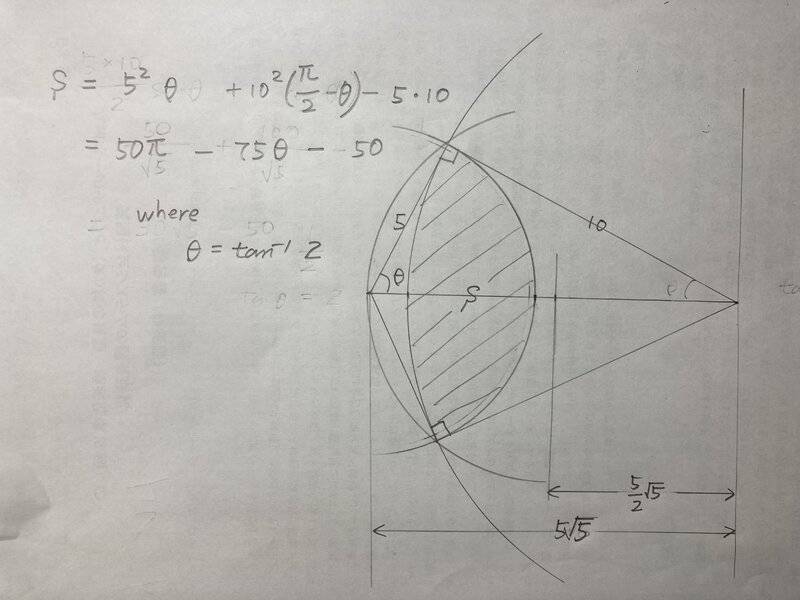 S = 5² θ + 10² (π/2 - θ) - 5・10
= 50π - 75θ - 50
where
θ = tan⁻¹ 2
5
10
θ
S
5/2 √5
5√5